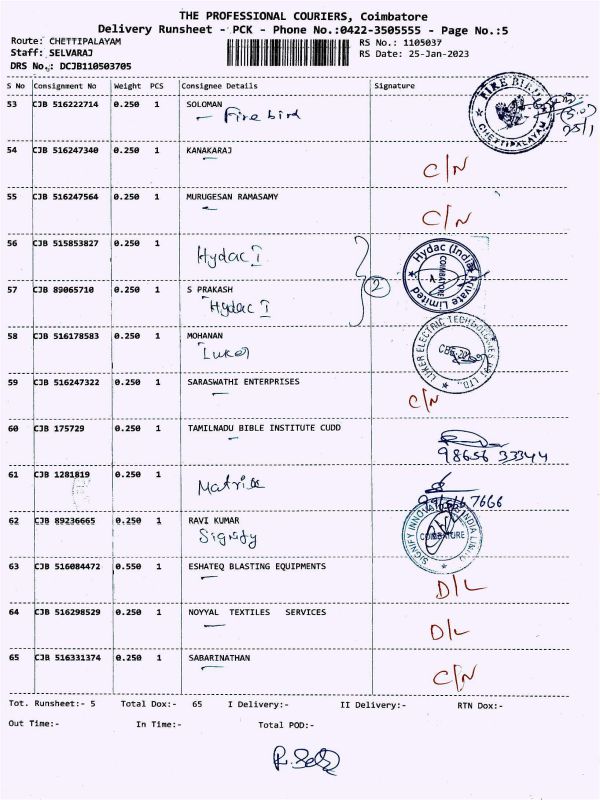 THE PROFESSIONAL COURIERS, Coimbatore
Delivery Runsheet - PCK - Phone No.:0422-3505555 - Page No.:5
Route: CHETTIPALAYAM
RS No.: 1105037
Staff: SELVARAJ
RS Date: 25-Jan-2023
DRS No.: DCJB110503705
S No Consignment No Weight PCS Consignee Details Signature
53 CJB 516222714 0.250 1 SOLOMAN
Fire bird
FIRE BIRD
CHETTIPALAYAM
25/1
54 CJB 516247340 0.250 1 KANAKARAJ
C/N
55 CJB 516247564 0.250 1 MURUGESAN RAMASAMY
C/N
56 CJB 515853827 0.250 1
Hydac I
Hydac (India) Private Limited
COIMBATORE
2
57 CJB 89065710 0.250 1 S PRAKASH
Hydac I
58 CJB 516178583 0.250 1 MOHANAN
Luker
LUKER ELECTRIC TECHNOLOGIES PVT LTD.,
59 CJB 516247322 0.250 1 SARASWATHI ENTERPRISES
C/N
60 CJB 175729 0.250 1 TAMILNADU BIBLE INSTITUTE CUDD
98656 33344
61 CJB 1281819 0.250 1
Matrix
62 CJB 89236665 0.250 1 RAVI KUMAR
Signify
SIGNIFY INNOVATIONS INDIA LIMITED
COIMBATORE
63 CJB 516084472 0.550 1 ESHATEQ BLASTING EQUIPMENTS
D/L
64 CJB 516298529 0.250 1 NOYYAL TEXTILES SERVICES
D/L
65 CJB 516331374 0.250 1 SABARINATHAN
C/N
Tot. Runsheet:- 5 Total Dox:- 65 I Delivery:- II Delivery:- RTN Dox:-
Out Time:- In Time:- Total POD:-